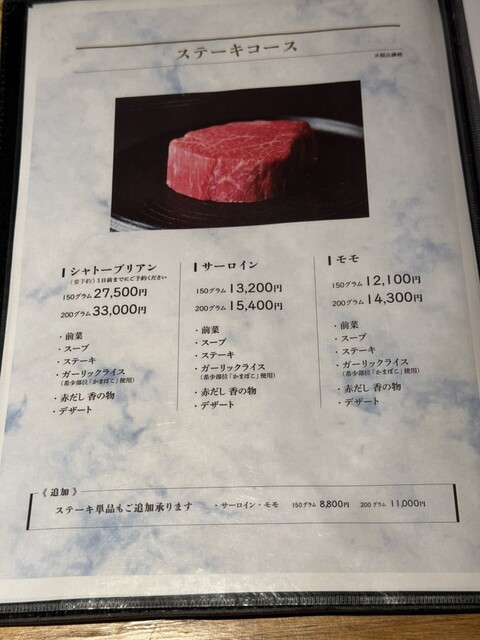 ステーキコース
※税込価格
シャトーブリアン
（要予約）1日前までにご予約ください
150グラム 27,500円
200グラム 33,000円
・前菜
・スープ
・ステーキ
・ガーリックライス
（希少部位「かまぼこ」使用）
・赤だし 香の物
・デザート
サーロイン
150グラム 13,200円
200グラム 15,400円
・前菜
・スープ
・ステーキ
・ガーリックライス
（希少部位「かまぼこ」使用）
・赤だし 香の物
・デザート
モモ
150グラム 12,100円
200グラム 14,300円
・前菜
・スープ
・ステーキ
・ガーリックライス
（希少部位「かまぼこ」使用）
・赤だし 香の物
・デザート
《 追加 》
ステーキ単品もご追加承ります ・サーロイン・モモ 150グラム 8,800円 200グラム 11,000円